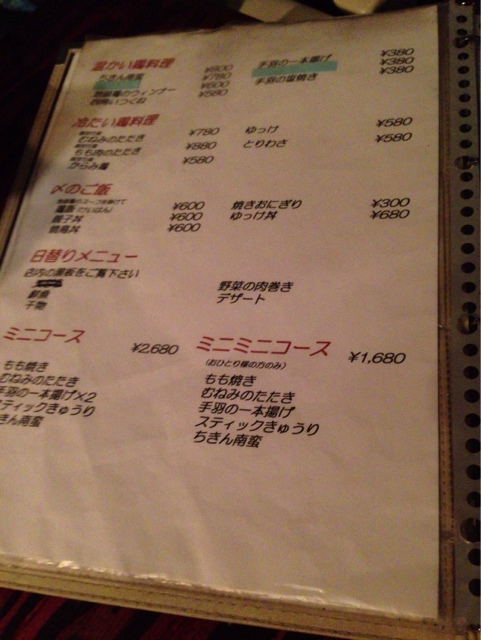 温かい鶏料理
ちきん南蛮 ¥800
¥780
地鶏のウィンナー ¥600
四時いつくね ¥580
手羽の一本揚げ ¥380
¥380
手羽の塩焼き ¥380
冷たい鶏料理
むねみのたたき ¥780
もも肉のたたき ¥880
からみ鶏 ¥580
ゆっけ ¥580
とりわさ ¥580
〆のご飯
鶏飯(けいはん) ¥600
親子丼 ¥600
¥600
焼きおにぎり ¥300
ゆっけ丼 ¥680
日替りメニュー
店内の黒板をご覧下さい
鮮魚
干物
野菜の肉巻き
デザート
ミニコース ¥2,680
もも焼き
むねみのたたき
手羽の一本揚げ×2
スティックきゅうり
ちきん南蛮
ミニミニコース ¥1,680
(おひとり様の方のみ)
もも焼き
むねみのたたき
手羽の一本揚げ
スティックきゅうり
ちきん南蛮